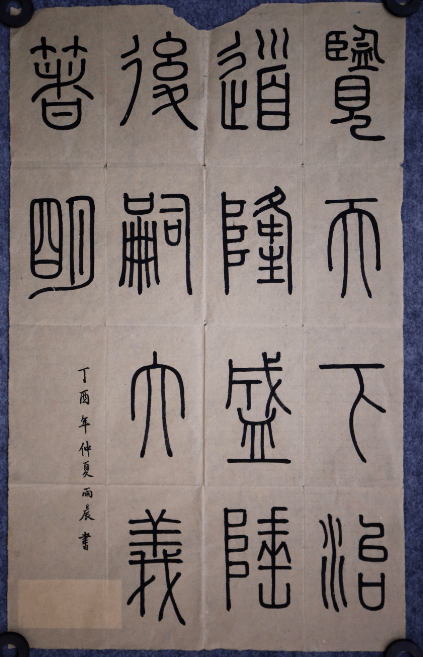 覽天下治
道隆盛陲
後嗣大義
著明
丁酉年仲夏雨晨書